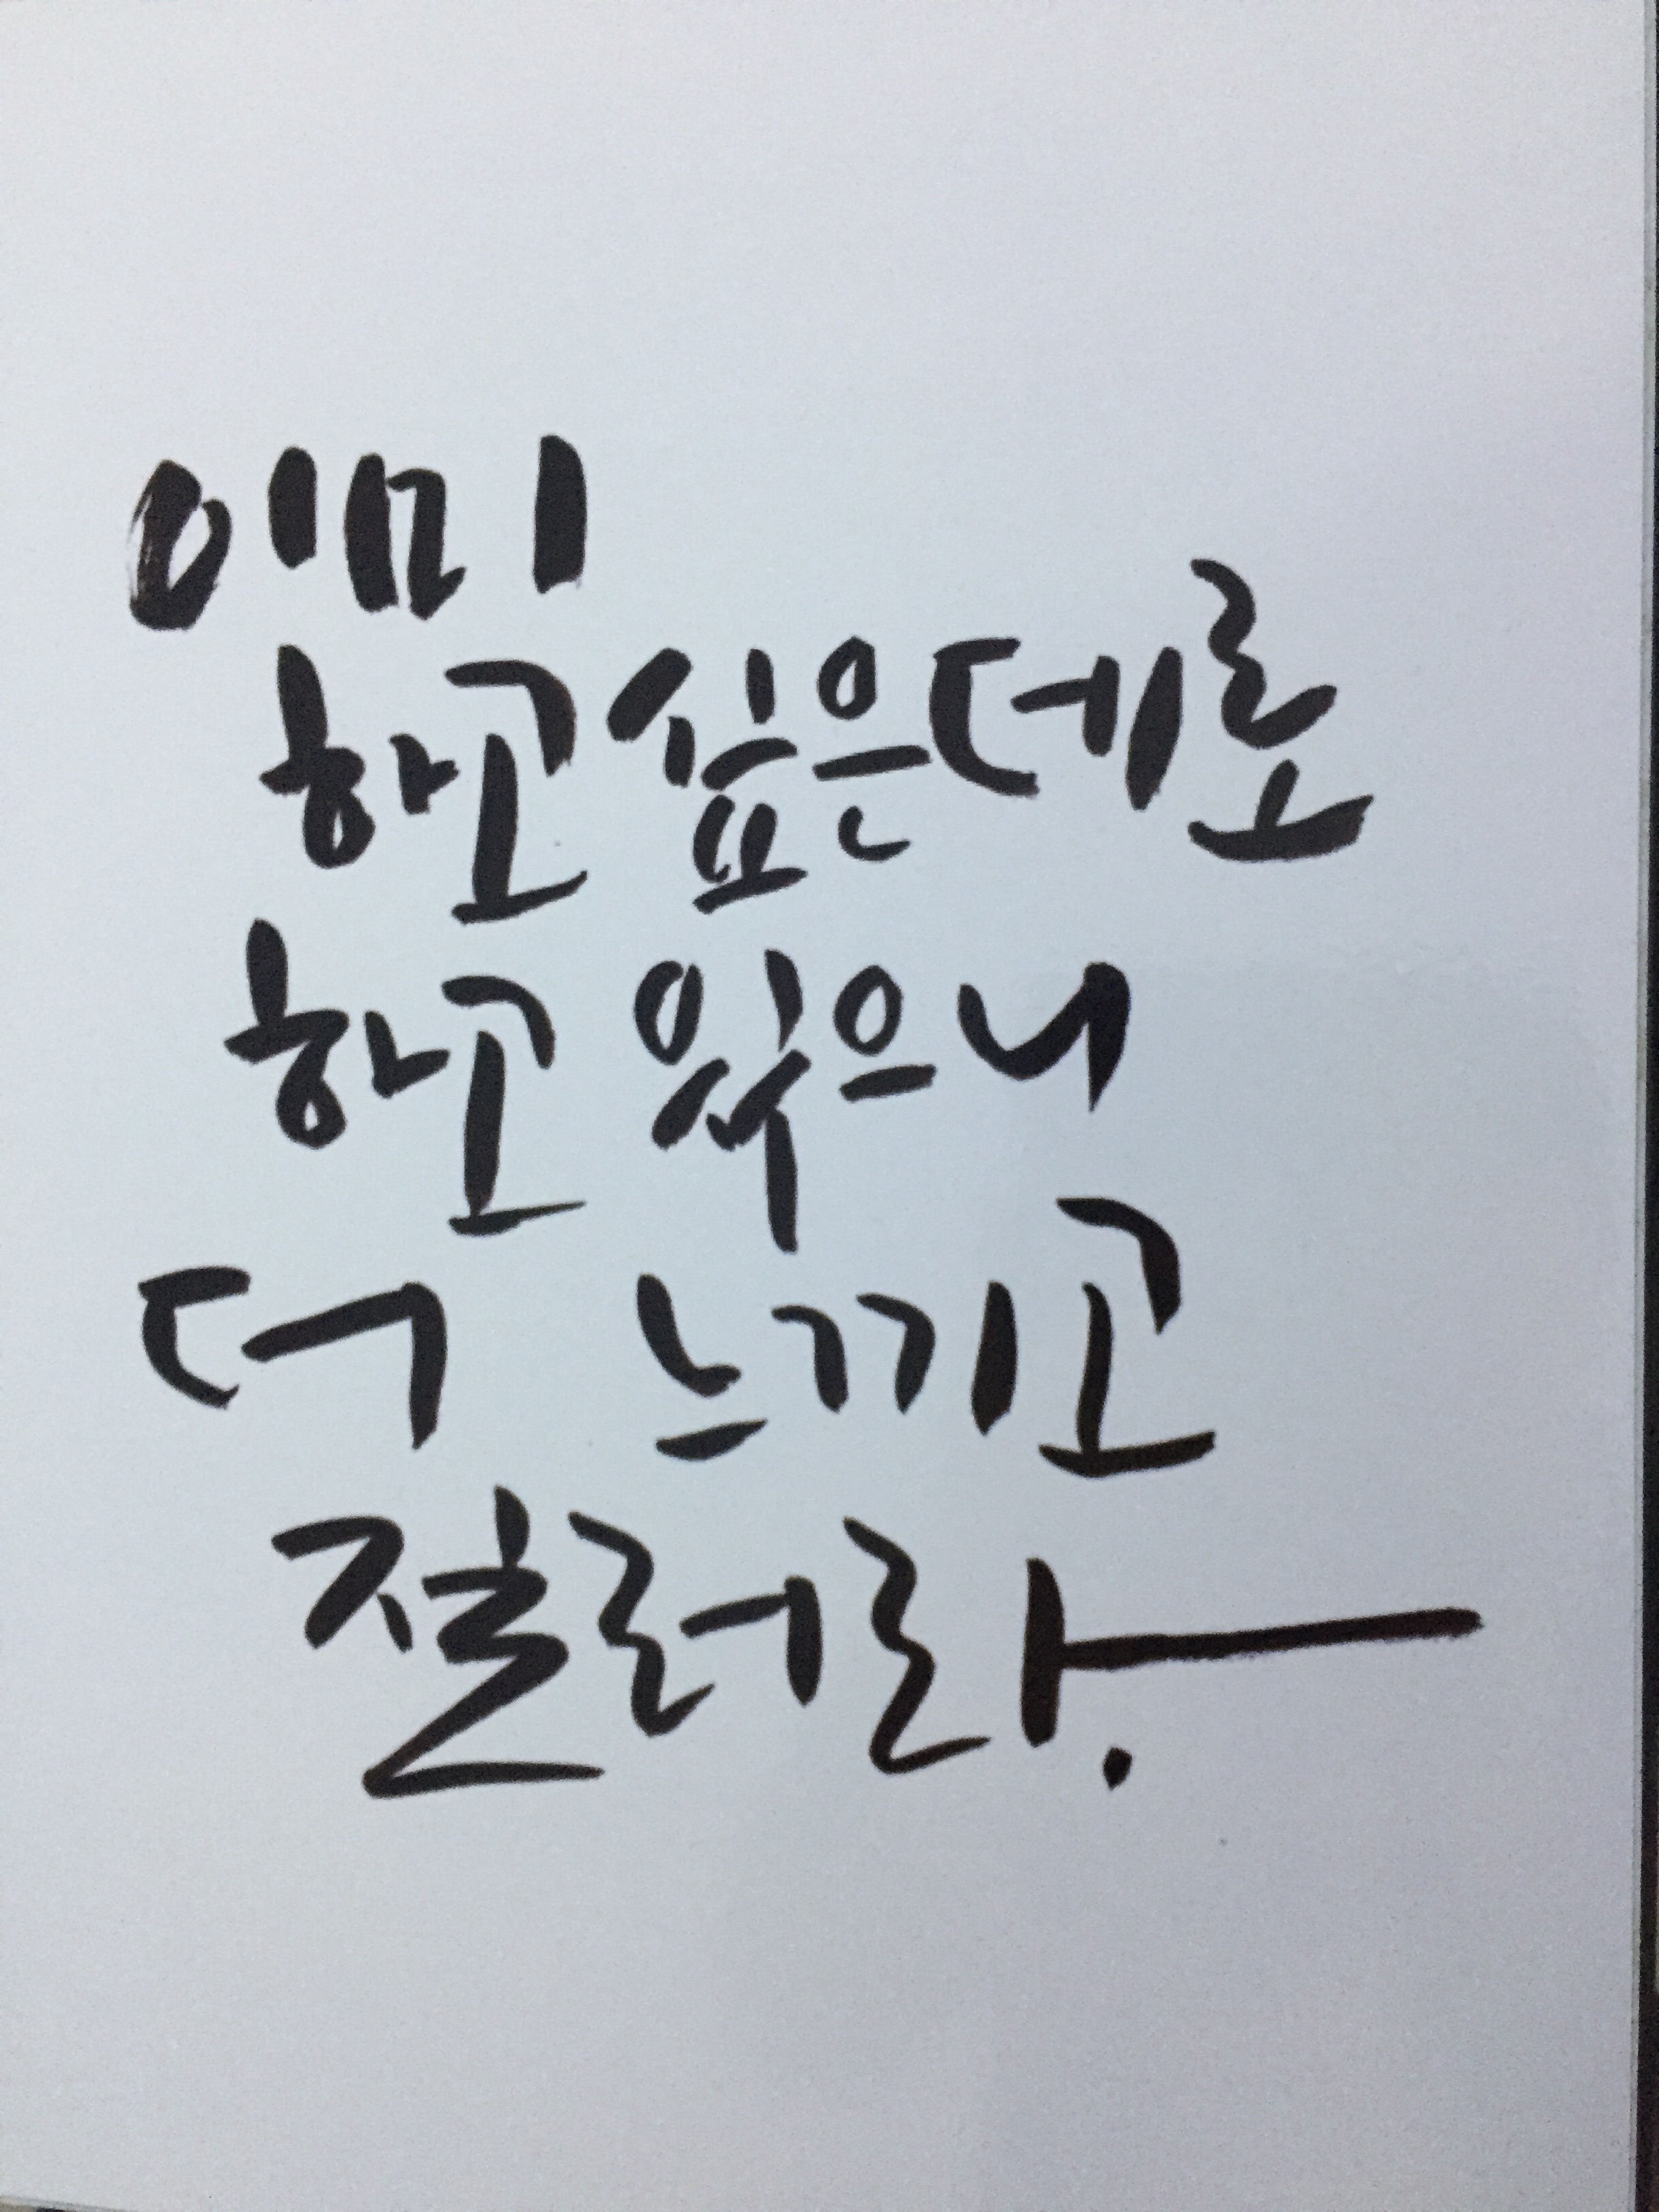 이미
하고 싶은데로
하고 있으니
더 느끼고
질러라.